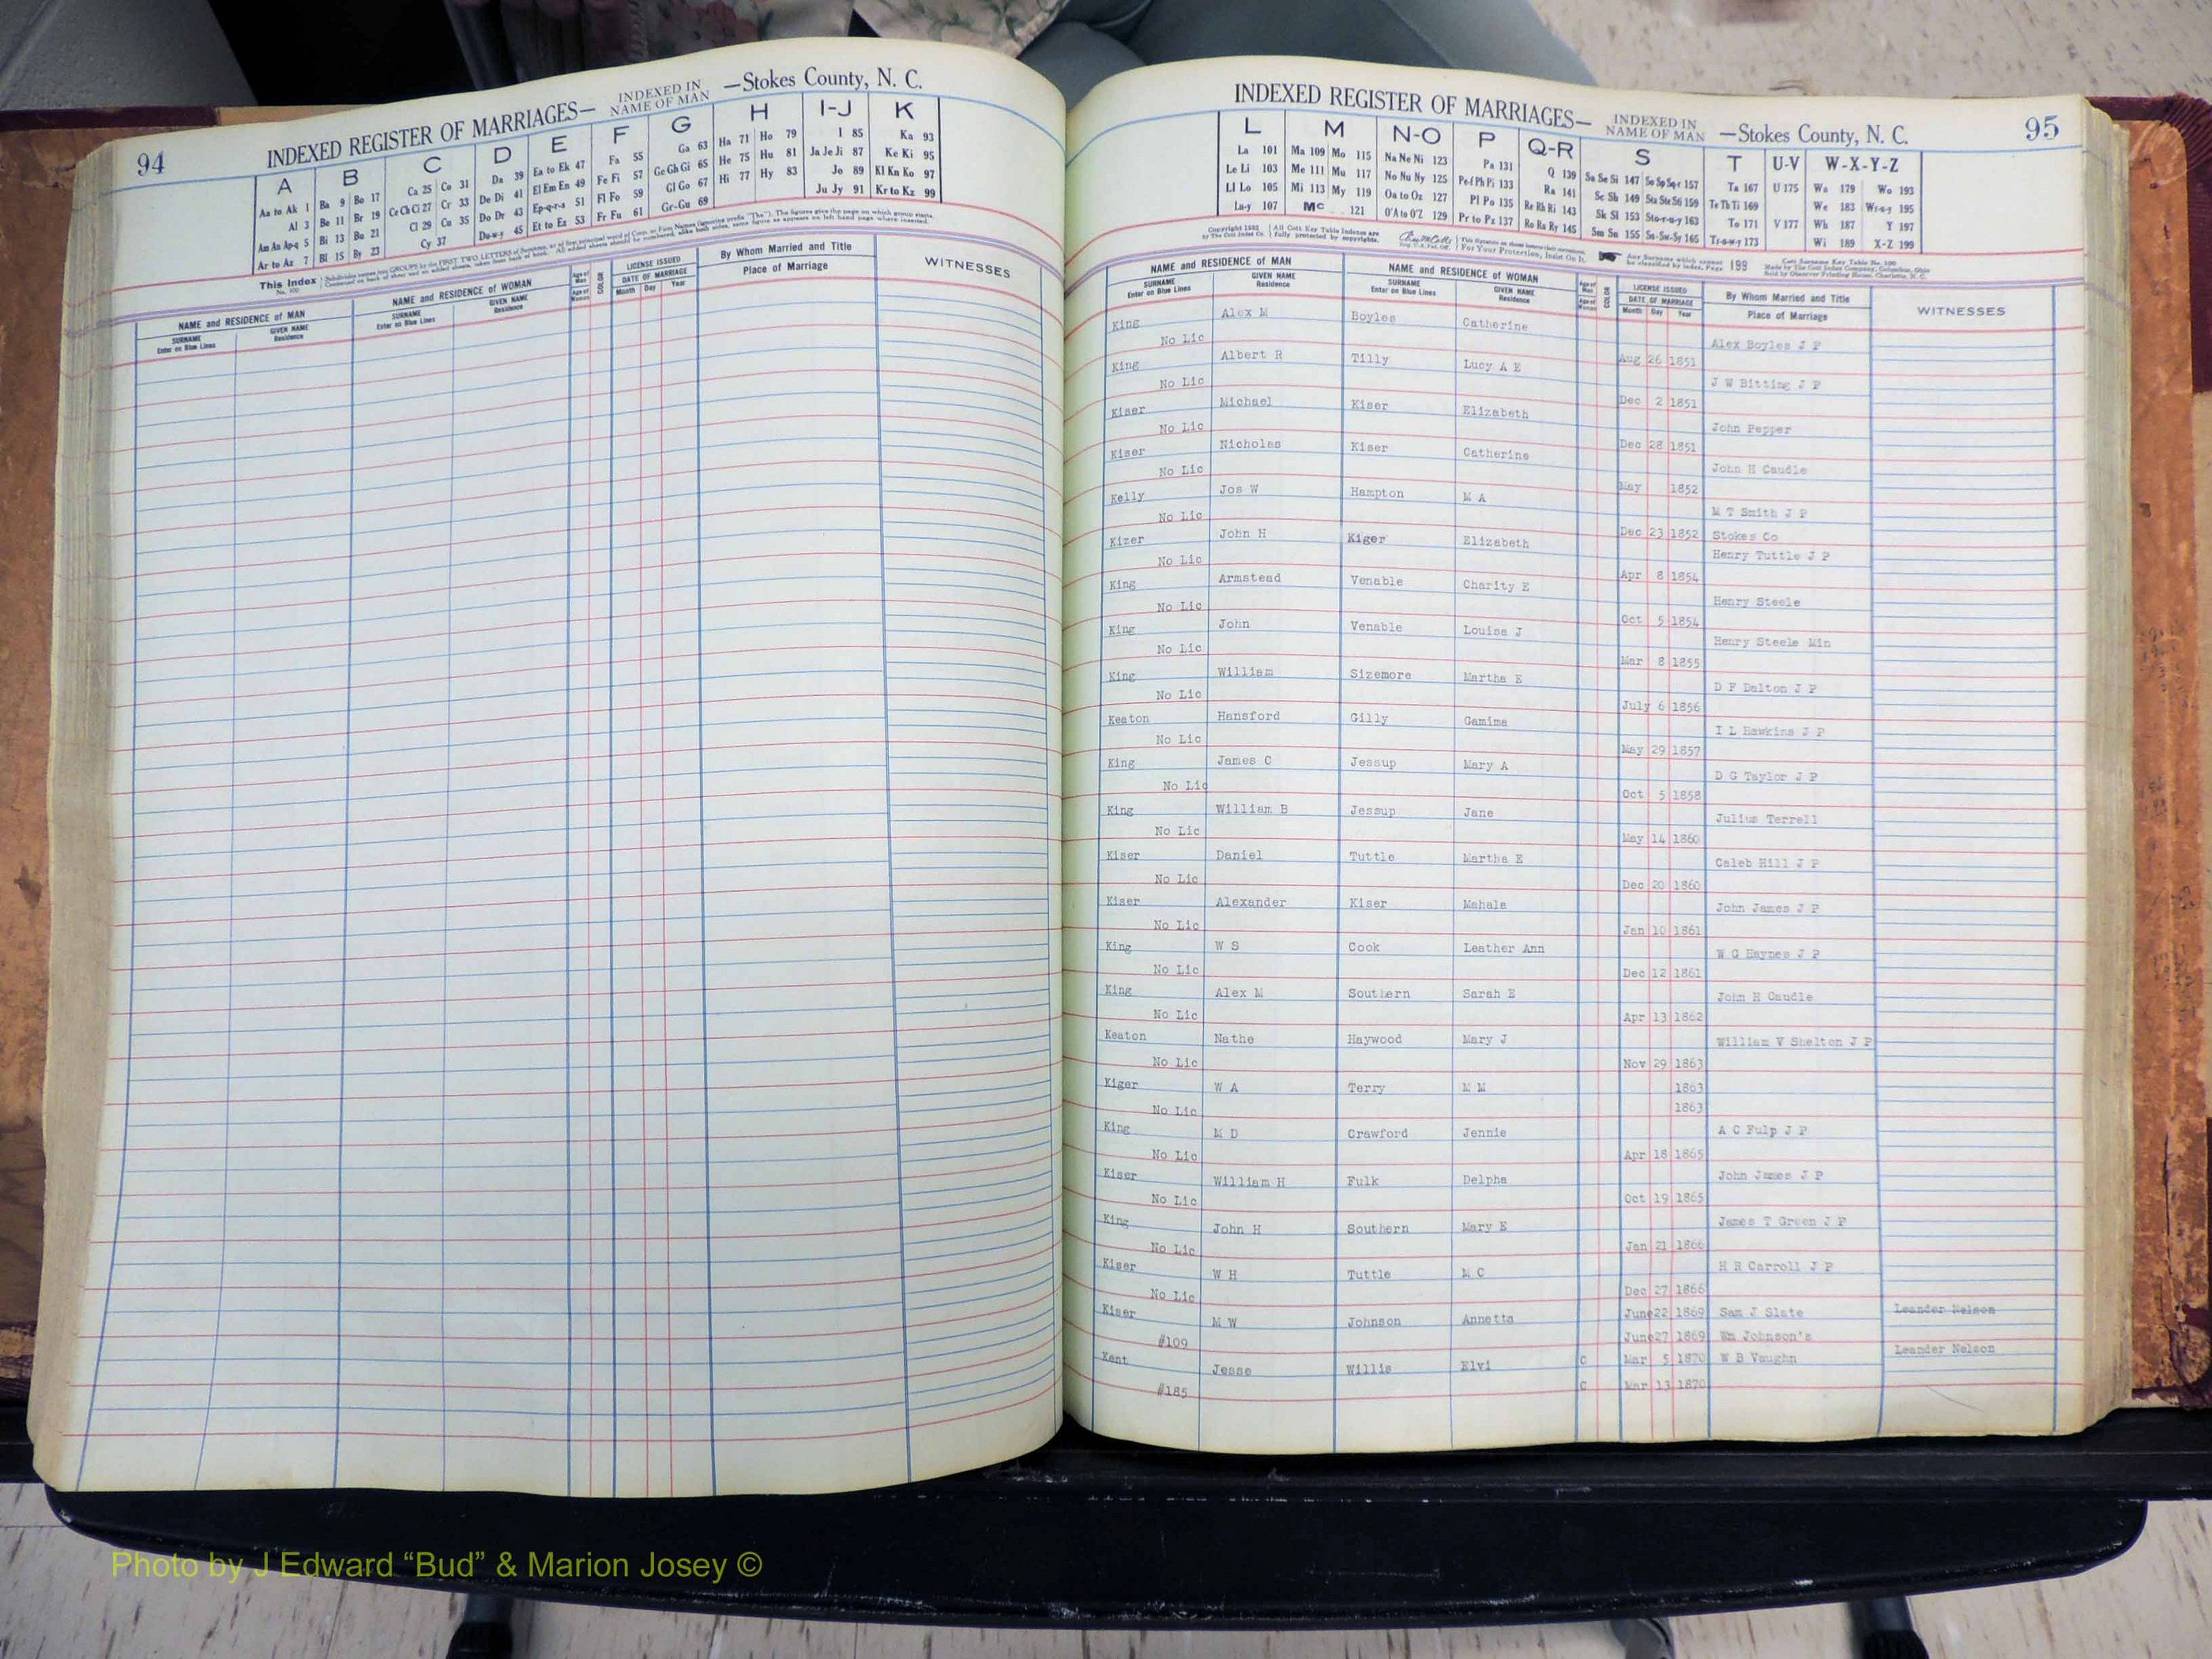 94
INDEXED REGISTER OF MARRIAGES— INDEXED IN NAME OF MAN —Stokes County, N. C.
A B C D E F G H I-J K
Aa to Ak 1 Ba 9 Bo 17 Ca 25 Co 31 Da 39 Ea to Ek 47 Fa 55 Ga 63 Ha 71 Ho 79 I 85 Ka 93
Al 3 Be 11 Br 19 Ce Ch Ci 27 Cr 33 De Di 41 El Em En 49 Fe Fi 57 Ge Gh Gi 65 He 75 Hu 81 Ja Je Ji 87 Ke Ki 95
Am An Ap-q 5 Bi 13 Bu 21 Cl 29 Cu 35 Do Dr 43 Ep-q-r-s 51 Fl Fo 59 Gl Go 67 Hi 77 Hy 83 Jo 89 Kl Kn Ko 97
Ar to Az 7 Bl 15 By 23 Cy 37 Du-w-y 45 Et to Ez 53 Fr Fu 61 Gr-Gu 69 Ju Jy 91 Kr to Kz 99
This Index
NAME and RESIDENCE OF MAN NAME and RESIDENCE OF WOMAN LICENSE ISSUED By Whom Married and Title WITNESSES
SURNAME Enter on Blue Lines GIVEN NAME Residence SURNAME Enter on Blue Lines GIVEN NAME Residence Age of Man Age of Woman COLOR DATE OF MARRIAGE Month Day Year Place of Marriage
INDEXED REGISTER OF MARRIAGES— INDEXED IN NAME OF MAN —Stokes County, N. C.
95
L M N-O P Q-R S T U-V W-X-Y-Z
La 101 Ma 109 Mo 115 Na Ne Ni 123 Pa 131 Q 139 Sa Se Si 147 So Sp Sq-r 157 Ta 167 U 175 Wa 179 Wo 193
Le Li 103 Me 111 Mu 117 No Nu Ny 125 Pe-f Ph Pi 133 Ra 141 Sc Sh 149 Sta Ste Sti 159 Te Th Ti 169 We 183 Wr-u-y 195
Ll Lo 105 Mi 113 My 119 Oa to Oz 127 Pl Po 135 Re Rh Ri 143 Sk Sl 153 Sto-r-u-y 163 To 171 V 177 Wh 187 Y 197
Lu-y 107 Mc 121 O'A to O'Z 129 Pr to Pz 137 Ro Ru Ry 145 Sm Sn 155 Su-Sw-Sy 165 Tr-u-w-y 173 Wi 189 X-Z 199
NAME and RESIDENCE OF MAN NAME and RESIDENCE OF WOMAN LICENSE ISSUED By Whom Married and Title WITNESSES
SURNAME Enter on Blue Lines GIVEN NAME Residence SURNAME Enter on Blue Lines GIVEN NAME Residence Age of Man Age of Woman COLOR DATE OF MARRIAGE Month Day Year Place of Marriage
King Alex M Boyles Catherine Alex Boyles J P
No Lic Aug 26 1851
King Albert R Tilly Lucy A E J W Bitting J P
No Lic Dec 2 1851
Kiser Michael Kiser Elizabeth John Pepper
No Lic Dec 28 1851
Kiser Nicholas Kiser Catherine John H Caudle
No Lic May 1852
Kelly Jos W Hampton M A M T Smith J P
No Lic Dec 23 1852 Stokes Co
Kizer John H Kiger Elizabeth Henry Tuttle J P
No Lic Apr 8 1854
King Armstead Venable Charity E Henry Steele
No Lic Oct 5 1854
King John Venable Louisa J Henry Steele Min
No Lic Mar 8 1855
King William Sizemore Martha E D F Dalton J P
No Lic July 6 1856
Keaton Hansford Gilly Gamima I L Hawkins J P
No Lic May 29 1857
King James C Jessup Mary A D G Taylor J P
No Lic Oct 5 1858
King William B Jessup Jane Julius Terrell
No Lic May 14 1860
Kiser Daniel Tuttle Martha E Caleb Hill J P
No Lic Dec 20 1860
Kiser Alexander Kiser Mahala John James J P
No Lic Jan 10 1861
King W S Cook Leather Ann W G Haynes J P
No Lic Dec 12 1861
King Alex M Southern Sarah E John H Caudle
No Lic Apr 13 1862
Keaton Nathe Haywood Mary J William V Shelton J P
No Lic Nov 29 1863
Kiger W A Terry M M 1863
No Lic 1863
King M D Crawford Jennie A C Fulp J P
No Lic Apr 18 1865
Kiser William H Fulk Delpha John James J P
No Lic Oct 19 1865
King John H Southern Mary E James T Green J P
No Lic Jan 21 1866
Kiser W H Tuttle M C H R Carroll J P
No Lic Dec 27 1866
Kiser M W Johnson Annetta June 22 1869 Sam J Slate Leander Nelson
#109 June 27 1869 Wm Johnson's
Kent Jesse Willis Elvi C Mar 5 1870 W B Vaughn Leander Nelson
#185 C Mar 13 1870
Photo by J Edward “Bud” & Marion Josey ©